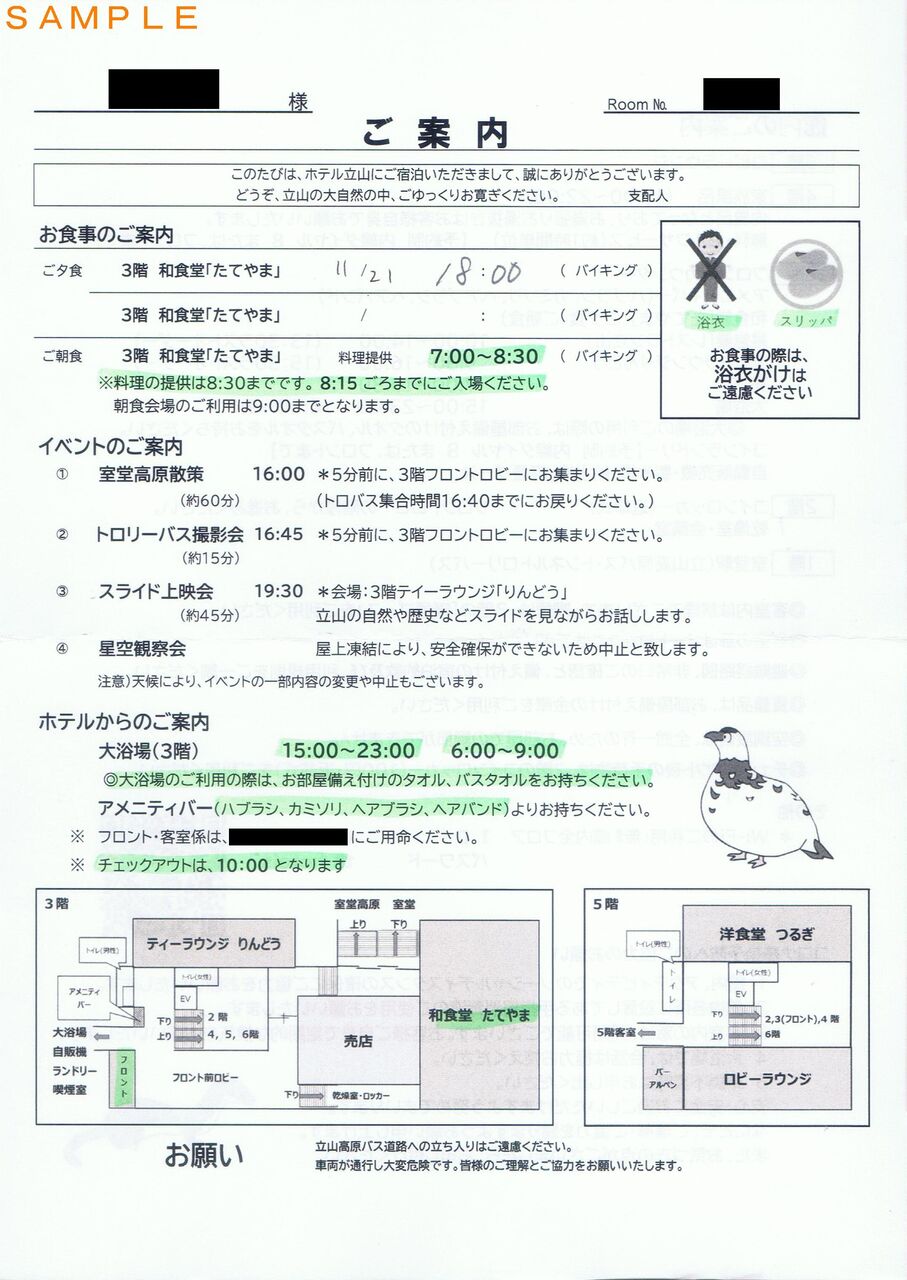 SAMPLE
様
Room №
ご案内
このたびは、ホテル立山にご宿泊いただきまして、誠にありがとうございます。
どうぞ、立山の大自然の中、ごゆっくりお寛ぎください。 支配人
お食事のご案内
ご夕食 3階 和食堂「たてやま」 11/21 18:00 ( バイキング )
3階 和食堂「たてやま」 / : ( バイキング )
ご朝食 3階 和食堂「たてやま」 料理提供 7:00~8:30 ( バイキング )
※料理の提供は8:30までです。8:15ごろまでにご入場ください。
朝食会場のご利用は9:00までとなります。
浴衣 スリッパ
お食事の際は、
浴衣がけは
ご遠慮ください
イベントのご案内
① 室堂高原散策 16:00 *5分前に、3階フロントロビーにお集まりください。
(約60分) (トロバス集合時間16:40までにお戻りください。)
② トロリーバス撮影会 16:45 *5分前に、3階フロントロビーにお集まりください。
(約15分)
③ スライド上映会 19:30 *会場:3階テイーラウンジ「りんどう」
(約45分) 立山の自然や歴史などスライドを見ながらお話しします。
④ 星空観察会 屋上凍結により、安全確保ができないため中止と致します。
注意)天候により、イベントの一部内容の変更や中止もございます。
ホテルからのご案内
大浴場(3階) 15:00~23:00 6:00~9:00
◎大浴場のご利用の際は、お部屋備え付けのタオル、バスタオルをお持ちください。
アメニティバー(ハブラシ、カミソリ、ヘアブラシ、ヘアバンド)よりお持ちください。
※ フロント・客室係は、 にご用命ください。
※ チェックアウトは、10:00 となります
3階
室堂高原 室堂
上り 下り
ティーラウンジ りんどう
トイレ(男性)
トイレ(女性)
EV
アメニティ
バー
下り 2階
上り 4、5、6階
大浴場
自販機
ランドリー
喫煙室
フロント
フロント前ロビー
売店
和食堂 たてやま
下り 乾燥室・ロッカー
5階
洋食堂 つるぎ
トイレ(男性)
トイレ
トイレ(女性)
EV
下り 2,3(フロント),4階
上り 6階
5階客室
バー
アルペン
ロビーラウンジ
お願い
立山高原バス道路への立ち入りはご遠慮ください。
車両が通行し大変危険です。皆様のご理解とご協力をお願いいたします。